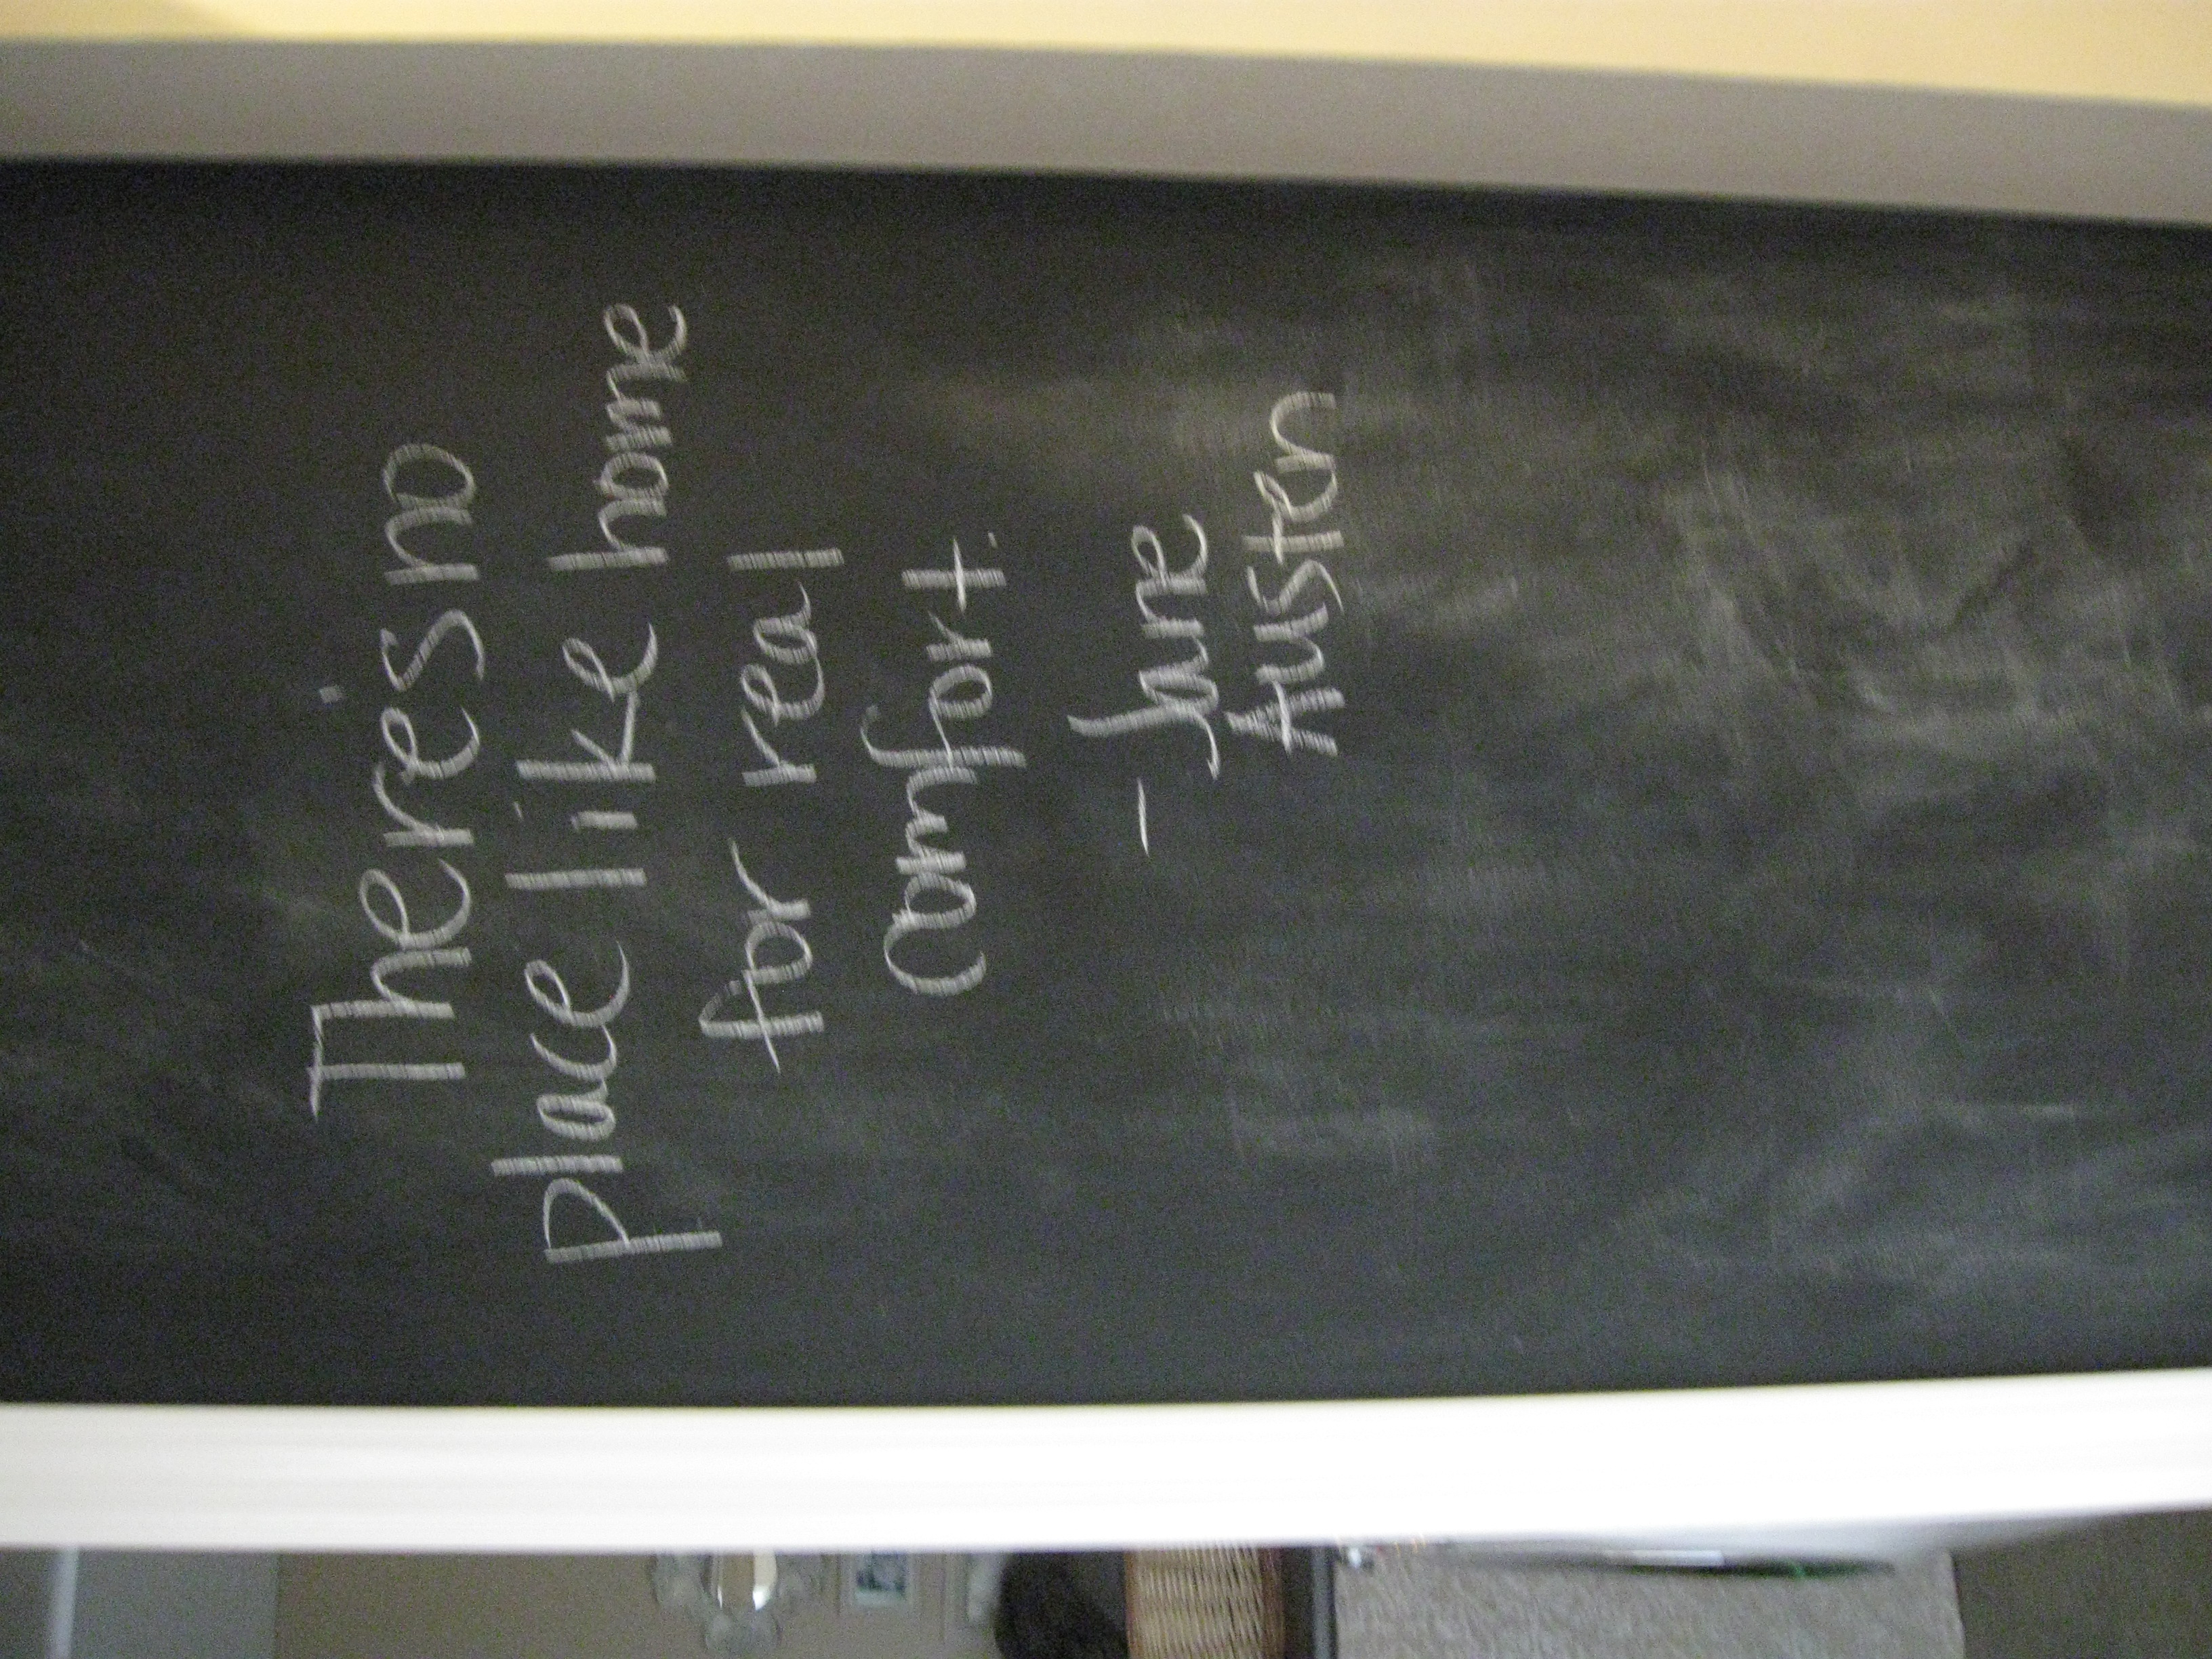 There's no
place like home
for real
comfort.
- Jane
Austen